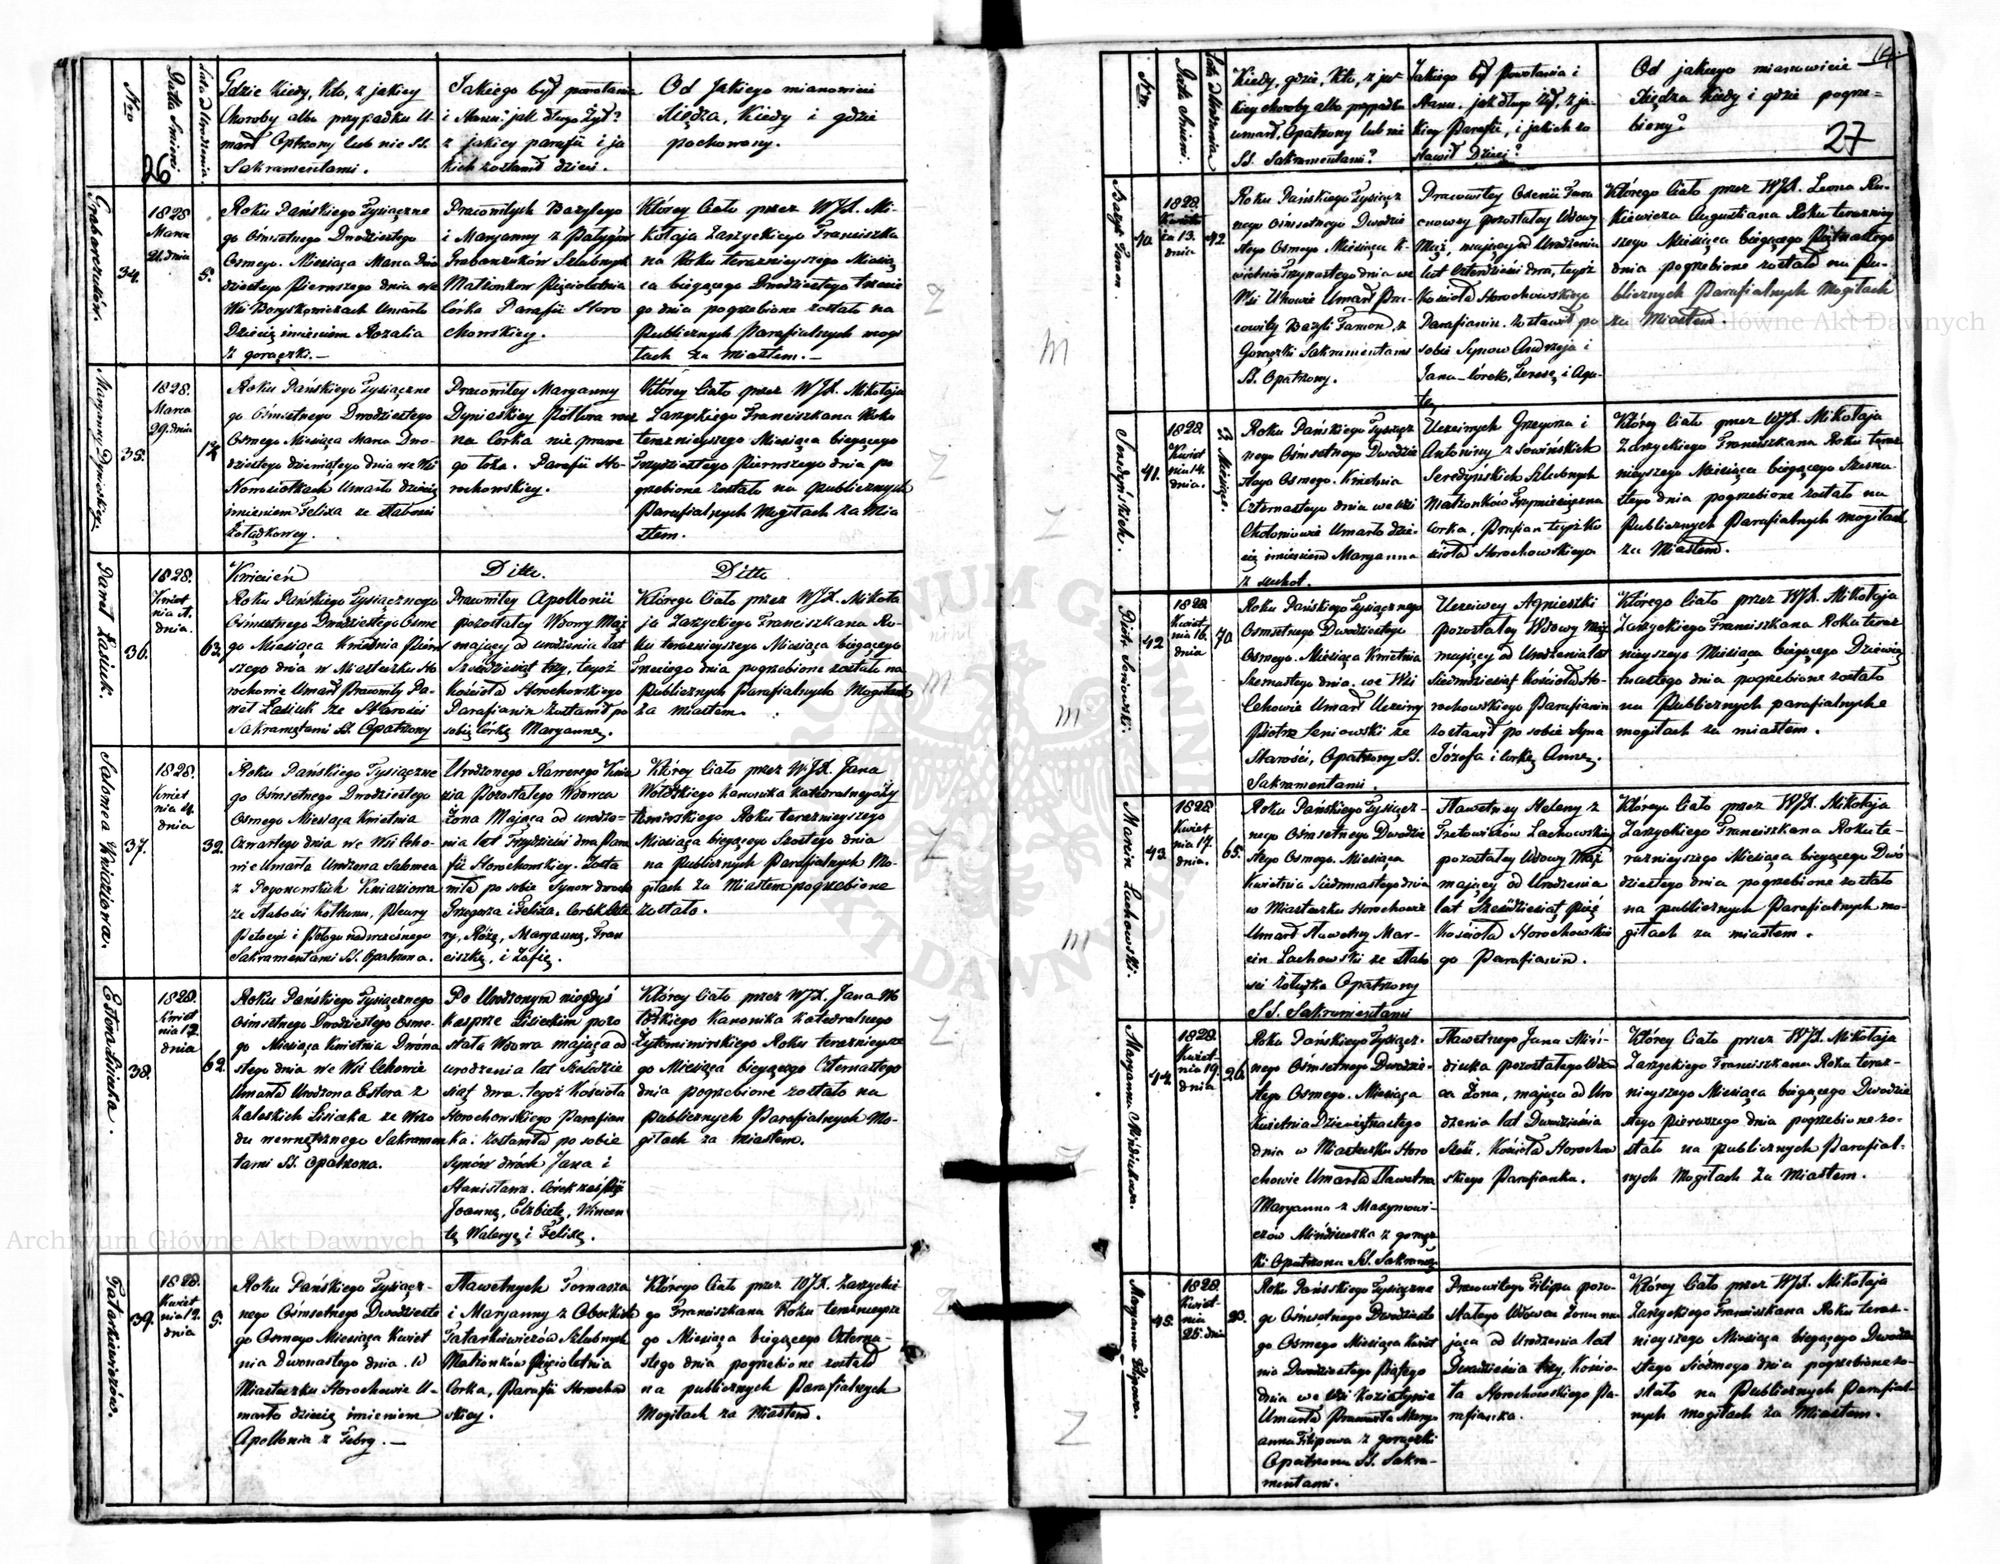 Nro
Datta Smierci
Lata od Urodzenia.
26
Gdzie Kiedy, Kto, z jakiey
Choroby albo przypadku U-
marł Optrzony lub nie SS.
Sakramentami.
Jakiego był powołania
i Stanu: jak długo żył?
z jakiey parafii i ja
kich zostawił dzieci.
Od Jakiego mianowicie
Xiędza, Kiedy i gdzie
pochowany.
34.
1828
Marca
21. dnia
5.
Roku Pańskiego Tysiączne
go Ośmsetnego Dwudziestego
Osmego. Miesiąca Marca Dwu
dziestego Pierwszego dnia we
Wsi Umarło
Dziecię imieniem Rozalia
z gorączki. —
Pracowitych Bazylego
i Maryanny z
Szlubnych
Małżonkow Pięcioletnia
Corka Parafii Horo
chowskiey.
Którey Ciało przez WJX. Mi-
kołaja Zarzyckiego Franciszka
na Roku teraznieyszego Miesią
ca biegącego Dwudziestego Trzecie
go dnia pogrzebione zostało na
Publicznych Parafialnych mogi
łach za Miastem. —
Maryanny Dynieskiey.
35.
1828.
Marca
29. dnia
Roku Pańskiego Tysiączne
go Ośmsetnego Dwudziestego
Osmego Miesiąca Marca Dwu-
dziestego dziewiątego dnia we Wsi
Nowosiołkach Umarło dziecię
imieniem Felixa ze słabosci
Żołądkowey.
Pracowitey Maryanny
Dynieskiey Połtora rocz
na Corka nie prawe
go łoża. Parafii Ho-
rochowskiey.
Którey Ciało przez WJX. Mikołaja
Zarzyckiego Franciszkana Roku
teraznieyszego Miesiąca biegącego
Trzydziestego Pierwszego dnia po
grzebione zostało na Publicznych
Parafialnych Mogiłach za Mia
stem.
Paweł Łasiuk.
36.
1828.
Kwiet
nia 1.
dnia.
63.
Kwiecień
Roku Pańskiego Tysiącznego
Osmsetnego Dwudziestego Osme
go Miesiąca Kwietnia Pierw
szego dnia w Miasteczku Ho
rochowie Umarł Pracowity Pa-
weł Łasiuk ze Starości
Sakramętami SS. Opatrzony
Ditto.
Pracowitey Apollonii
pozostałey Wdowy Mąż
mający od urodzenia lat
Sześćdziesiąt trzy, teyoż
Kościoła Horochowskiego
Parafianin zostawił po
sobie Córkę Maryannę.
Ditto
Którego Ciało przez WJX. Mikoła
ja Zarzyckiego Franciszkana Ro-
ku teraznieyszego Miesiąca biegącego
Trzeciego dnia pogrzebione zostało na
Publicznych Parafialnych Mogiłach
za miastem.
Salomea Kniaziowa.
37.
1828.
Kwiet
nia 4.
dnia
32.
Roku Pańskiego Tysiączne
go Ośmsetnego Dwudziestego
Osmego Miesiąca Kwietnia
Czwartego dnia we Wsi Ceho-
wie Umarła Urodzona Salomea
z Kniaziowa
ze słabości Kołtunu, Pleury
Sakramentami SS. Opatrzona.
Urodzonego Xawerego Knia
zia Pozostałego Wdowca
Żona Mająca od urodze-
nia lat Trzydzieści dwa Para
fii Horochowskiey. Zosta
wiła po sobie Synow dwoch
Grzegorza i Felixa. Corek
Różę, Maryannę, Fran
ciszkę, i Zofię.
Którey Ciało przez WJX. Jana
Wołodzkiego Kanonika Katedralnego Ży
tomirskiego Roku teraznieyszego
Miesiąca biegącego Szostego dnia
na Publicznych Parafialnych Mo-
giłach za Miastem pogrzebione
zostało.
Estera Lisiecka.
38.
1828.
Kwiet
nia 12.
dnia
62.
Roku Pańskiego Tysiącznego
Ośmsetnego Dwudziestego Osme-
go Miesiąca Kwietnia Dwuna
stego dnia we Wsi Cehowie
Umarła Urodzona Estera z
Zaleskich Lisiecka ze Wrzo
du wewnętrznego Sakramen
tami SS. Opatrzona.
Po Urodzonym niegdyś
Kasprze Lisieckim pozo
stała Wdowa mająca od
urodzenia lat Sześćdzie
siąt dwa. tegoż Kościoła
Horochowskiego Parafian
ka: zostawiła po sobie
Synów dwóch Jana i
Stanisława. Córek zaś Pięć
Joannę, Elżbietę, Wincen
tę Waleryę i Felixę.
Którey Ciało przez WJX. Jana Wo
łodzkiego Kanonika Katedralnego
Żytomirskiego Roku teraznieysze
go Miesiąca biegącego Czternastego
dnia pogrzebione zostało na
Publicznych Parafialnych Mo-
giłach za Miastem.
Tatarkiewiczów.
39.
1828.
Kwiet
nia 12.
dnia
5.
Roku Pańskiego Tysiącz-
nego Ośmsetnego Dwudzieste
go Osmego Miesiąca Kwiet
nia Dwunastego dnia. W
Miasteczku Horochowie U-
marło dziecię imieniem
Apollonia z Febry. —
Sławetnych Tomasza
i Maryanny z
Tatarkiewiczów Szlubnych
Małżonków Pięcioletnia
Corka, Parafii Horochow
skiey.
Którego Ciało przez WJX. Zarzyckie
go Franciszkana Roku teraznieysze
go Miesiąca biegącego Czterna-
stego dnia pogrzebione zostało
na publicznych Parafialnych
Mogiłach za Miastem.
Nro.
Data Smierci.
Lata od Urodzenia
Kiedy, gdzie, Kto, z ja-
kiey choroby albo przypadku
umarł, Opatrzony lub nie
SS. Sakramentami?
Jakiego był Powołania i
Stanu. jak długo żył, z ja-
kiey Parafii, i jakich zo
stawił Dzieci?
Od jakiego mianowicie
Xiędza Kiedy i gdzie pogrze-
biony?
27
40.
1828.
Kwiet
nia 13.
dnia
42.
Roku Pańskiego Tysiącz
nego Ośmsetnego Dwudzie
stego Osmego Miesiąca K-
wietnia Trzynastego dnia we
Wsi Umarł Pra-
cowity Bazyli z
Gorączki Sakramentami
SS. Opatrzony.
Pracowitey
pozostałey Wdowy
Mąż, mający od Urodzenia
lat Czterdzieści dwa, teyoż
Kościoła Horochowskiego
Parafianin. Zostawił po
sobie Synow Andrzeja i
Jana – Córek, Teresę, i Aga-
tę.
Którego Ciało przez WJX. Leona
Augustiana Roku terazniey
szego Miesiąca biegącego Piętnastego
dnia pogrzebione zostało na Pu-
blicznych Parafialnych Mogiłach
za Miastem
41.
1828.
Kwiet
nia 14.
dnia.
3. Miesiące.
Roku Pańskiego Tysiącz
nego Ośmsetnego Dwudzie
stego Osmego. Kwietnia
Czternastego dnia we Wsi
Chołoniowie Umarło dzie-
cię imieniem Maryanna
z suchot.
Uczciwych Grzegorza i
Antoniny z Sowińskich
Seredyńskich Szlubnych
Małżonków Trzymiesięczna
Corka, Parafian teyże Ko
ścioła Horochowskiego
Którey Ciało przez WJX. Mikołaja
Zarzyckiego Franciszkana Roku teraz
nieyszego Miesiąca biegącego Szesna-
stego dnia pogrzebione zostało na
Publicznych Parafialnych mogiłach
za Miastem.
42
1828.
Kwiet
nia 16.
dnia
70
Roku Pańskiego Tysiącznego
Ośmsetnego Dwudziestego
Osmego. Miesiąca Kwietnia
Szesnastego dnia. we Wsi
Cehowie Umarł Uczciwy
Piotr ze
Starości, Opatrzony SS.
Sakramentami.
Uczciwey Agnieszki
pozostałey Wdowy Mąż
mający od Urodzenia lat
Siedmdziesiąt Kościoła Ho-
rochowskiego Parafianin
zostawił po sobie Syna
Józefa i Corkę Annę.
Którego Ciało przez WJX. Mikołaja
Zarzyckiego Franciszkana Roku teraz
nieyszego Miesiąca biegącego Dziewię
tnastego dnia pogrzebione zostało
na Publicznych parafialnych
mogiłach za miastem.
Marcin Lachowski.
43.
1828.
Kwiet
nia 17.
dnia.
65.
Roku Pańskiego Tysiącz-
nego Ośmsetnego Dwudzie
stego Osmego. Miesiąca
Kwietnia Siedmnastego dnia
w Miasteczku Horochowie
Umarł Sławetny Mar-
cin Lachowski ze Słabo
ści Żołądka Opatrzony
SS. Sakramentami
Sławetney Heleny z
Lachowskiey
pozostałey Wdowy Mąż
mający od Urodzenia
lat Sześćdziesiąt pięć
Kościoła Horochowskie
go Parafianin.
Którego Ciało przez WJX. Mikołaja
Zarzyckiego Franciszkana Roku te-
raznieyszego Miesiąca biegącego Dwu
dziestego dnia pogrzebione zostało
na publicznych Parafialnych mo-
giłach za miastem.
44.
1828.
Kwiet-
nia 19.
dnia
26.
Roku Pańskiego Tysiącz-
nego Ośmsetnego Dwudzie-
stego Osmego. Miesiąca
Kwietnia Dziewiętnastego
dnia w Miasteczku Horo
chowie Umarła Sławetna
Maryanna z
z gorącz
ki Opatrzona SS. Sakramen
Sławetnego Jana
pozostałego Wdow
ca Żona, mająca od Uro
dzenia lat Dwadzieścia
Sześć. Kościoła Horochow
skiego Parafianka.
Którey Ciało przez WJX. Mikołaja
Zarzyckiego Franciszkana Roku teraz-
nieyszego Miesiąca biegącego Dwudzie
stego pierwszego dnia pogrzebione zo-
stało na publicznych Parafial-
nych Mogiłach za Miastem.
Maryanna Filipowa.
45.
1828.
Kwiet-
nia
25. dnia
23.
Roku Pańskiego Tysiączne
go Ośmsetnego Dwudzieste
go Osmego Miesiąca Kwiet
nia Dwudziestego Piątego
dnia we Wsi Koziatynie
Umarła Pracowita Mary-
anna Filipowa z gorączki
Opatrzona SS. Sakra-
mentami.
Pracowitego Filipa pozo-
stałego Wdowca Żona ma
jąca od Urodzenia lat
Dwadzieścia trzy, Kościo-
ła Horochowskiego Pa-
rafianka.
Którey Ciało przez WJX. Mikołaja
Zarzyckiego Franciszkana Roku teraz-
nieyszego Miesiąca biegącego Dwudzie
stego Siódmego dnia pogrzebione zo-
stało na Publicznych Parafial-
nych mogiłach za Miastem.
Archiwum Główne Akt Dawnych
Archiwum Główne Akt Dawnych
ARCHIWUM GŁÓWNE AKT DAWNYCH